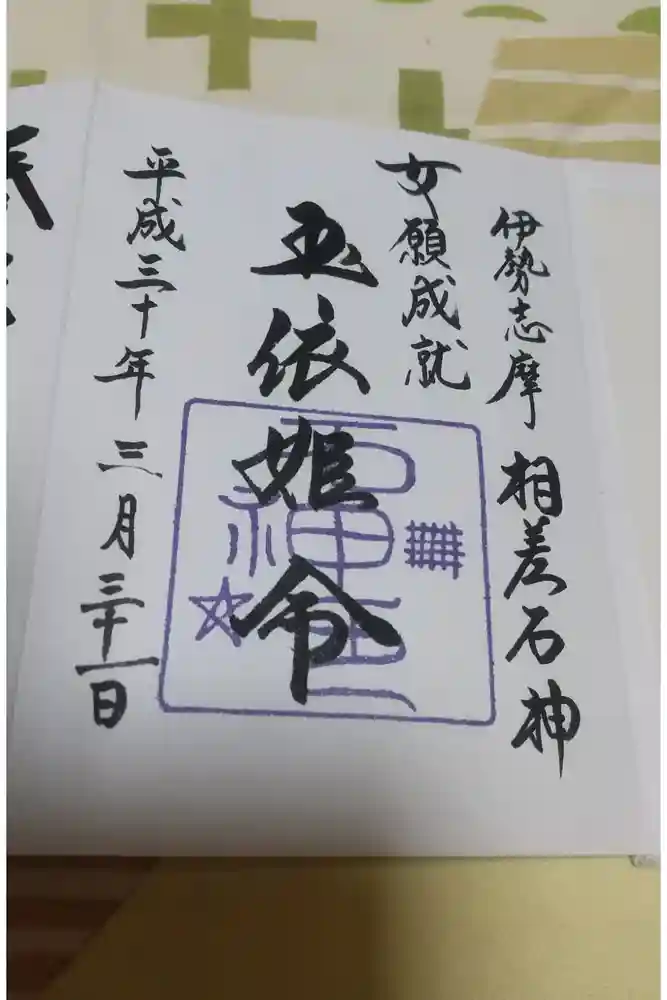 伊勢志摩 相差石神
女願成就
玉依姫命
石神
平成三十年三月三十一日